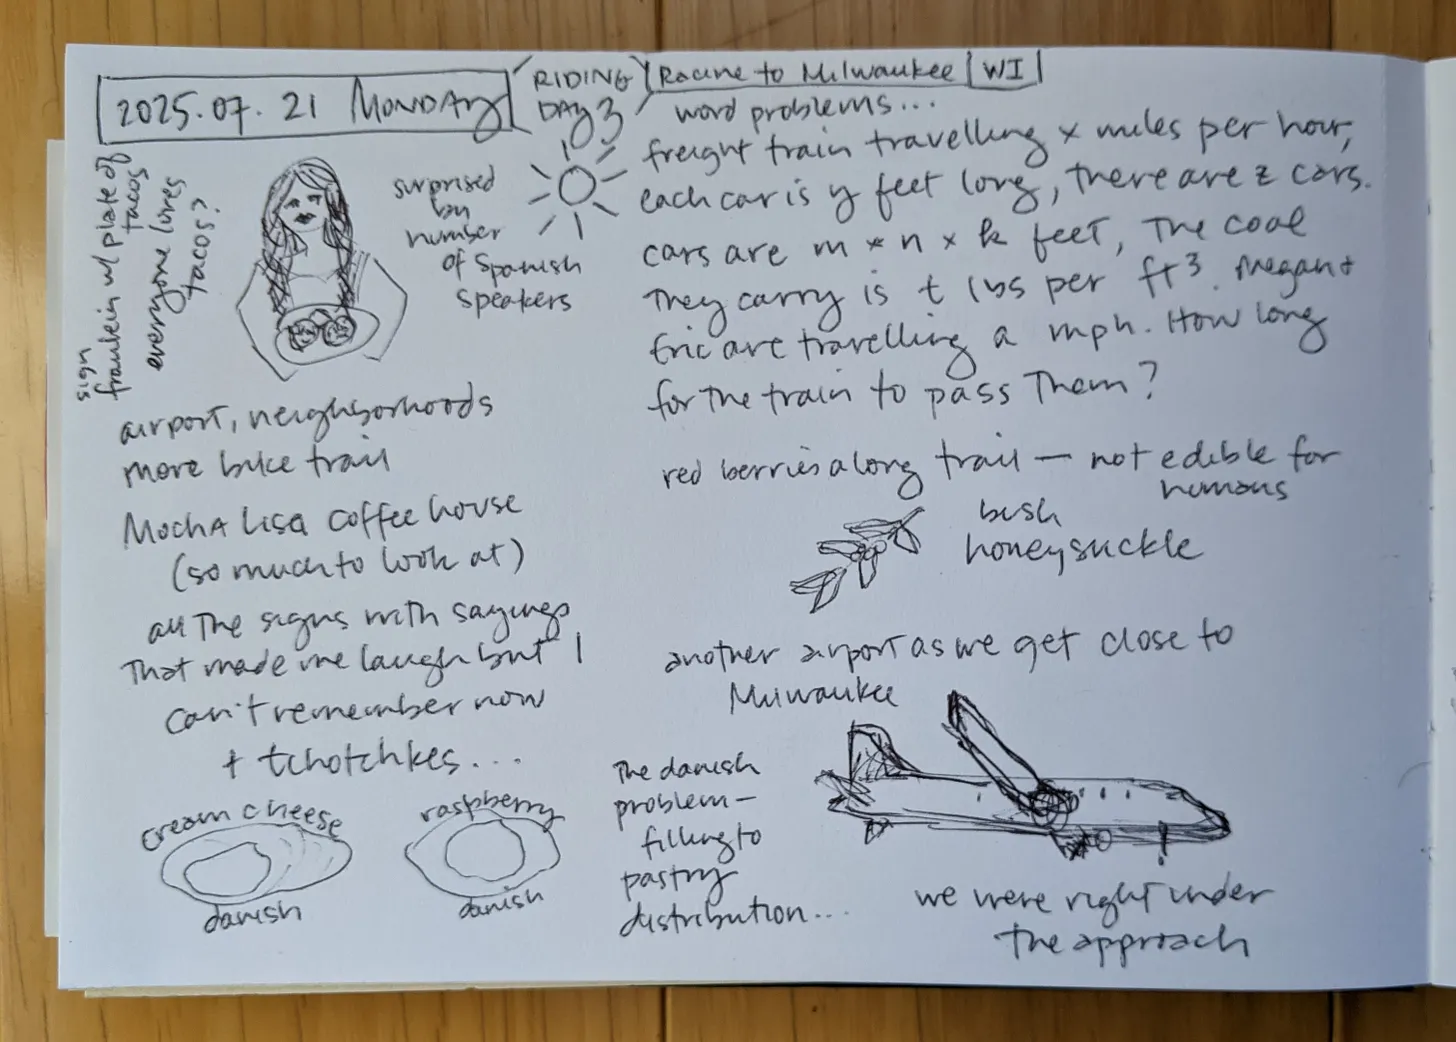 2025.07.21 MONDAY
RIDING
DAY 3
Racine to Milwaukee WI
sign
fraulein w/ plate of
tacos
everyone loves
tacos?
surprised
by
number
of Spanish
speakers
word problems...
freight train travelling x miles per hour,
each car is y feet long, there are z cars.
cars are m × n × k feet, The coal
They carry is t lbs per ft³. Megan +
Eric are travelling a mph. How long
for the train to pass Them?
airport, neighborhoods
more bike trail
Mocha Lisa coffee house
(so much to look at)
all The signs with sayings
That made me laugh but I
can't remember now
+ tchotchkes...
cream cheese
danish
raspberry
danish
The danish
problem –
filling to
pastry
distribution...
red berries along trail — not edible for
humans
bush
honeysuckle
another airport as we get close to
Milwaukee
we were right under
the approach